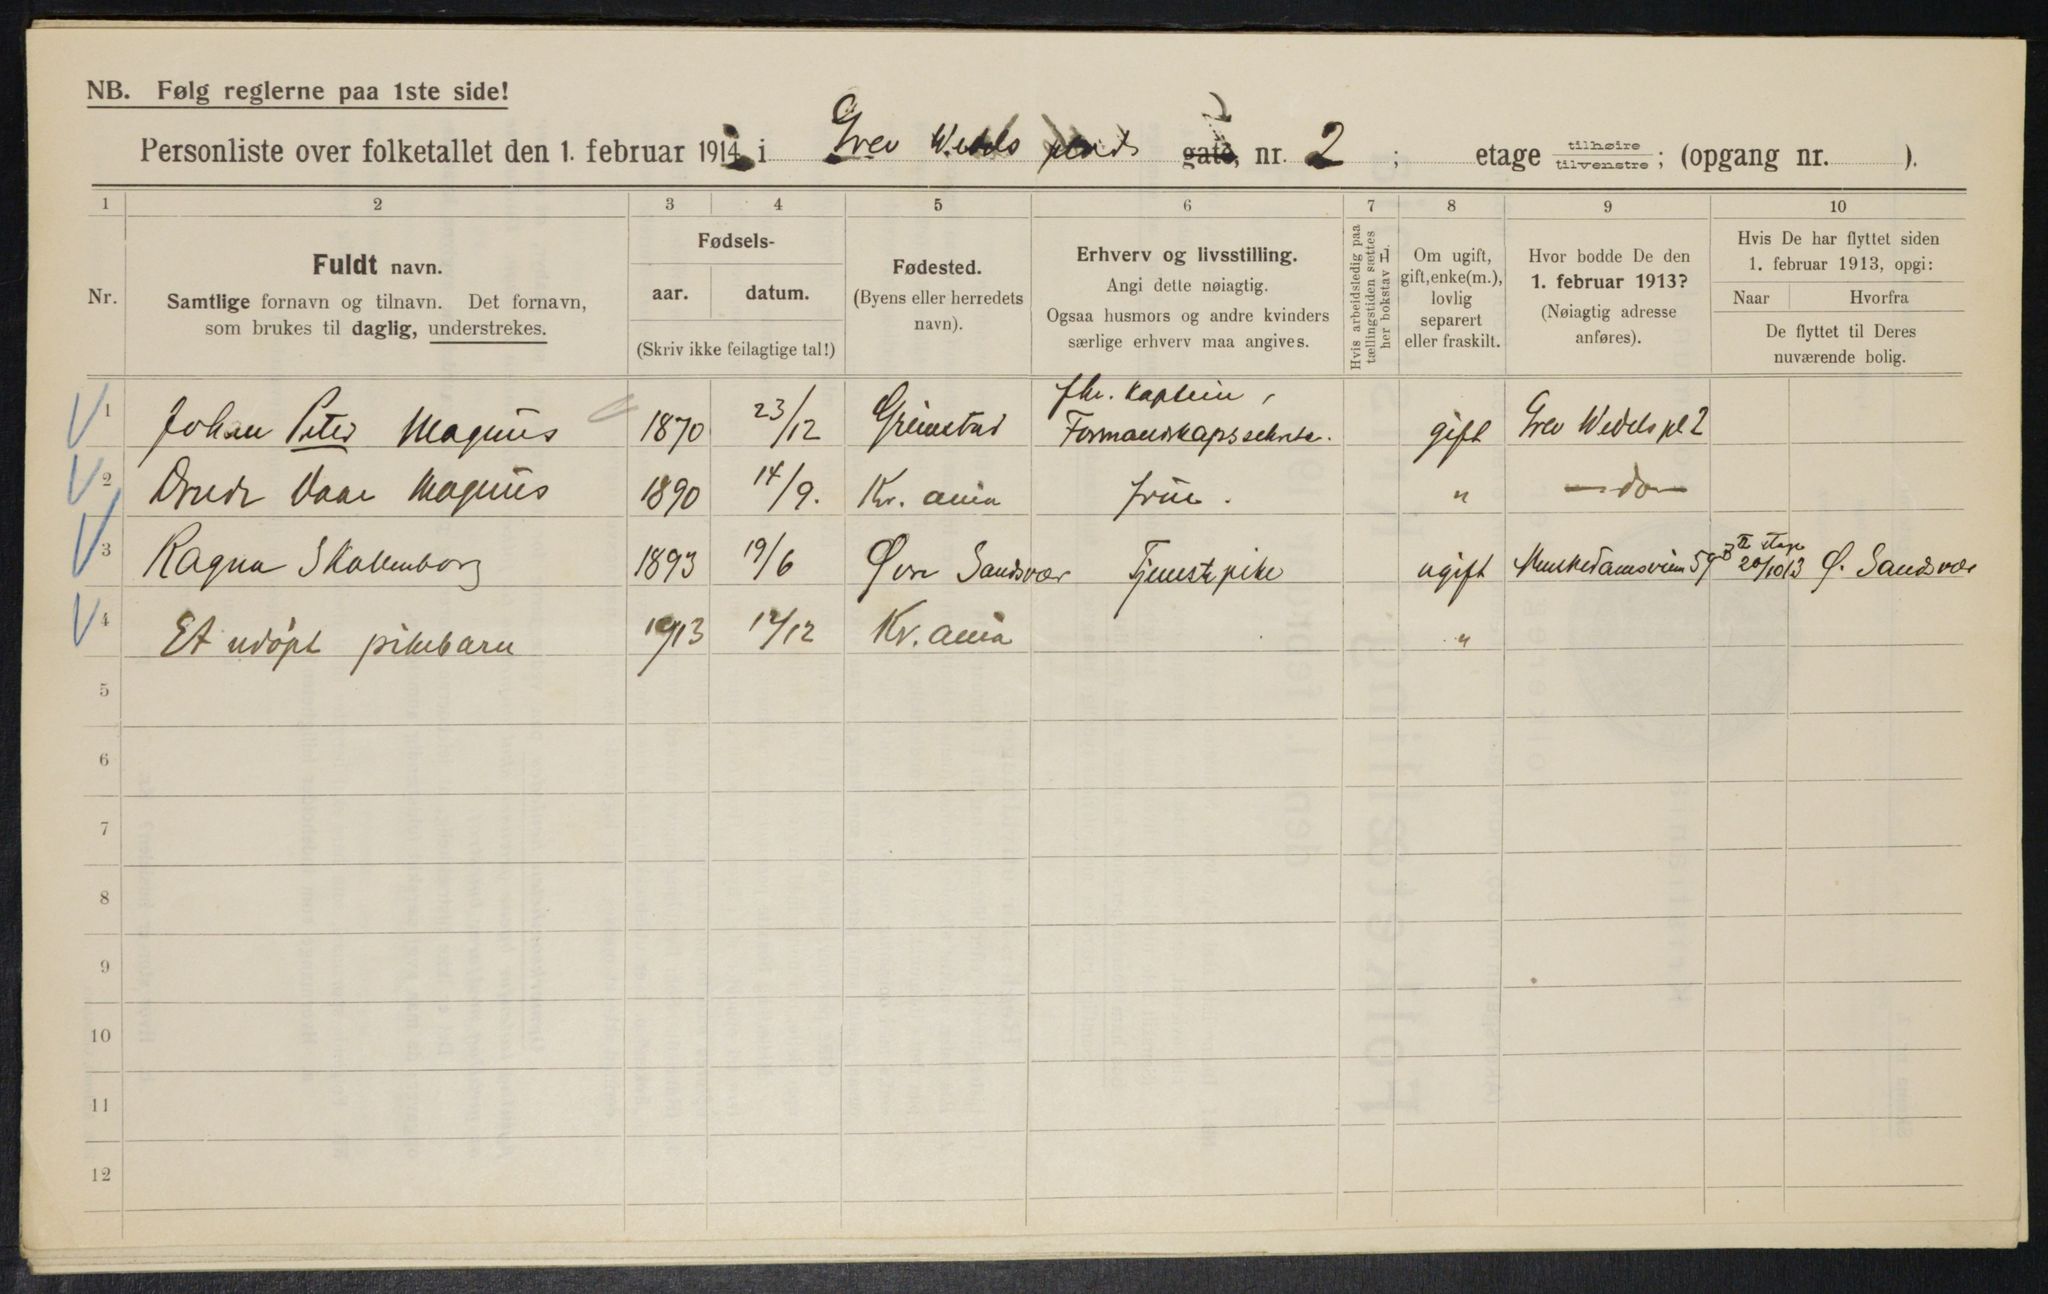 NB. Følg reglerne paa 1ste side!
Personliste over folketallet den 1. februar 1914 i Grev Wedels plads gate, nr. 2 ; etage tilhøire tilvenstre ; (opgang nr. ).
1 2 3 4 5 6 7 8 9 10
Nr.
Fuldt navn.
Samtlige fornavn og tilnavn. Det fornavn,
som brukes til daglig, understrekes.
Fødsels-
aar. datum.
(Skriv ikke feilagtige tal!)
Fødested.
(Byens eller herredets
navn).
Erhverv og livsstilling.
Angi dette nøiagtig.
Ogsaa husmors og andre kvinders
særlige erhverv maa angives.
Hvis arbeidsledig paa
tællingstiden sættes
her bokstav H.
Om ugift,
gift, enke(m.),
lovlig
separert
eller fraskilt.
Hvor bodde De den
1. februar 1913?
(Nøiagtig adresse
anføres).
Hvis De har flyttet siden
1. februar 1913, opgi:
Naar Hvorfra
De flyttet til Deres
nuværende bolig.
1 Johan Peter Magnus 1870 23/12 Grimstad fhv. Kaptein, Formandskapssekretær. gift Grev Wedels pl 2
2 Drude Vaar Magnus 1890 14/9. Kr. ania frue. " —do—
3 Ragna Skollenborg 1893 19/6 Øvre Sandsvær Tjenestepike ugift Munkedamsveien 59B II etage 20/10 13 Ø. Sandsvær
4 Et udøpt pikebarn 1913 12/12 Kr. ania "
5
6
7
8
9
10
11
12